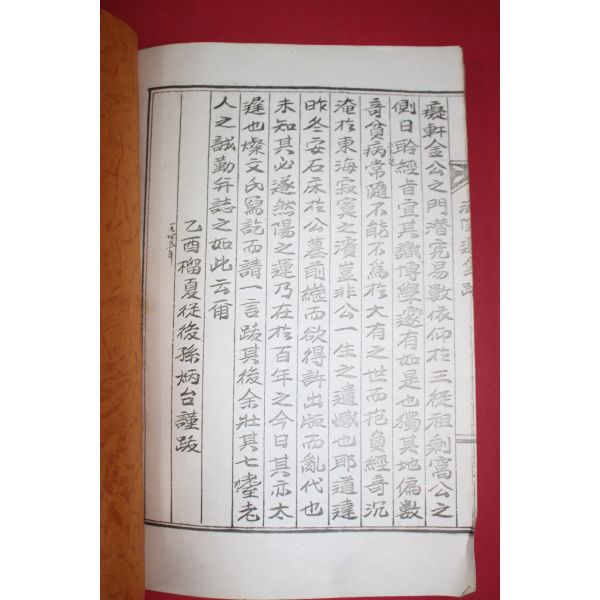 癡軒金公之門潛究易數依仰於三從祖剩窩公之
側日聆經旨宜其識博學邃有如是也獨其地偏數
奇貧病常隨不能不爲於大有之世而抱負經奇沉
淹於東海寂寞之濱豈非公一生之遺憾也耶道違
昨冬安石床於公墓前繼而欲得許出版而亂代也
未知其必遂然陽之運乃在於百年之今日其亦太
遲也燦文氏寫訖而請一言跋其後余壯其七耋老
人之誠勤弁誌之如此云爾
乙酉榴夏從後孫炳台謹跋
一九四五年